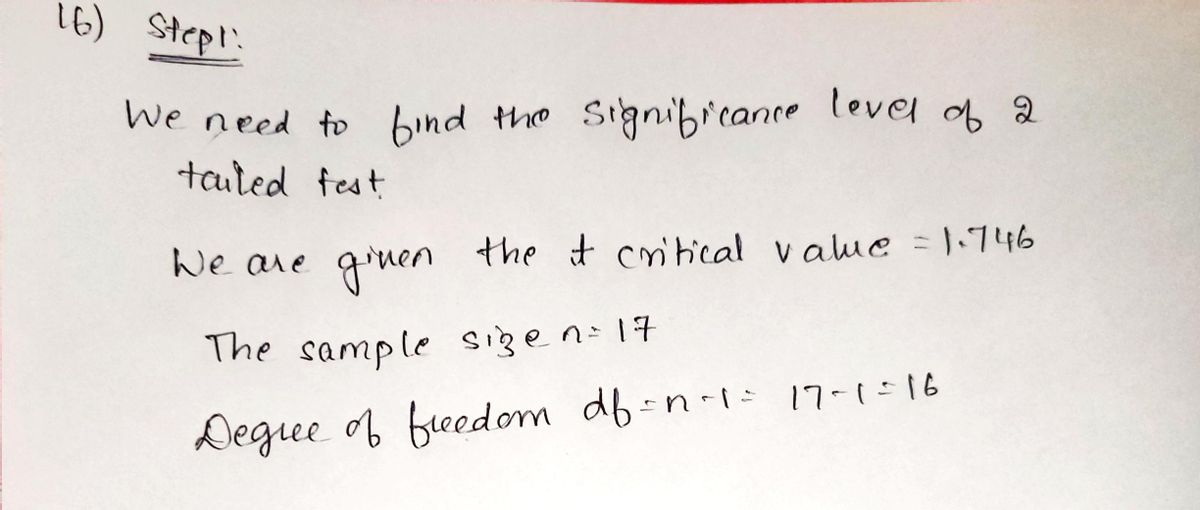 16) Step1:
We need to find the significance level of 2
tailed test.
We are given the t critical value = 1.746
The sample size n = 17
Degree of freedom df = n - 1 = 17 - 1 = 16